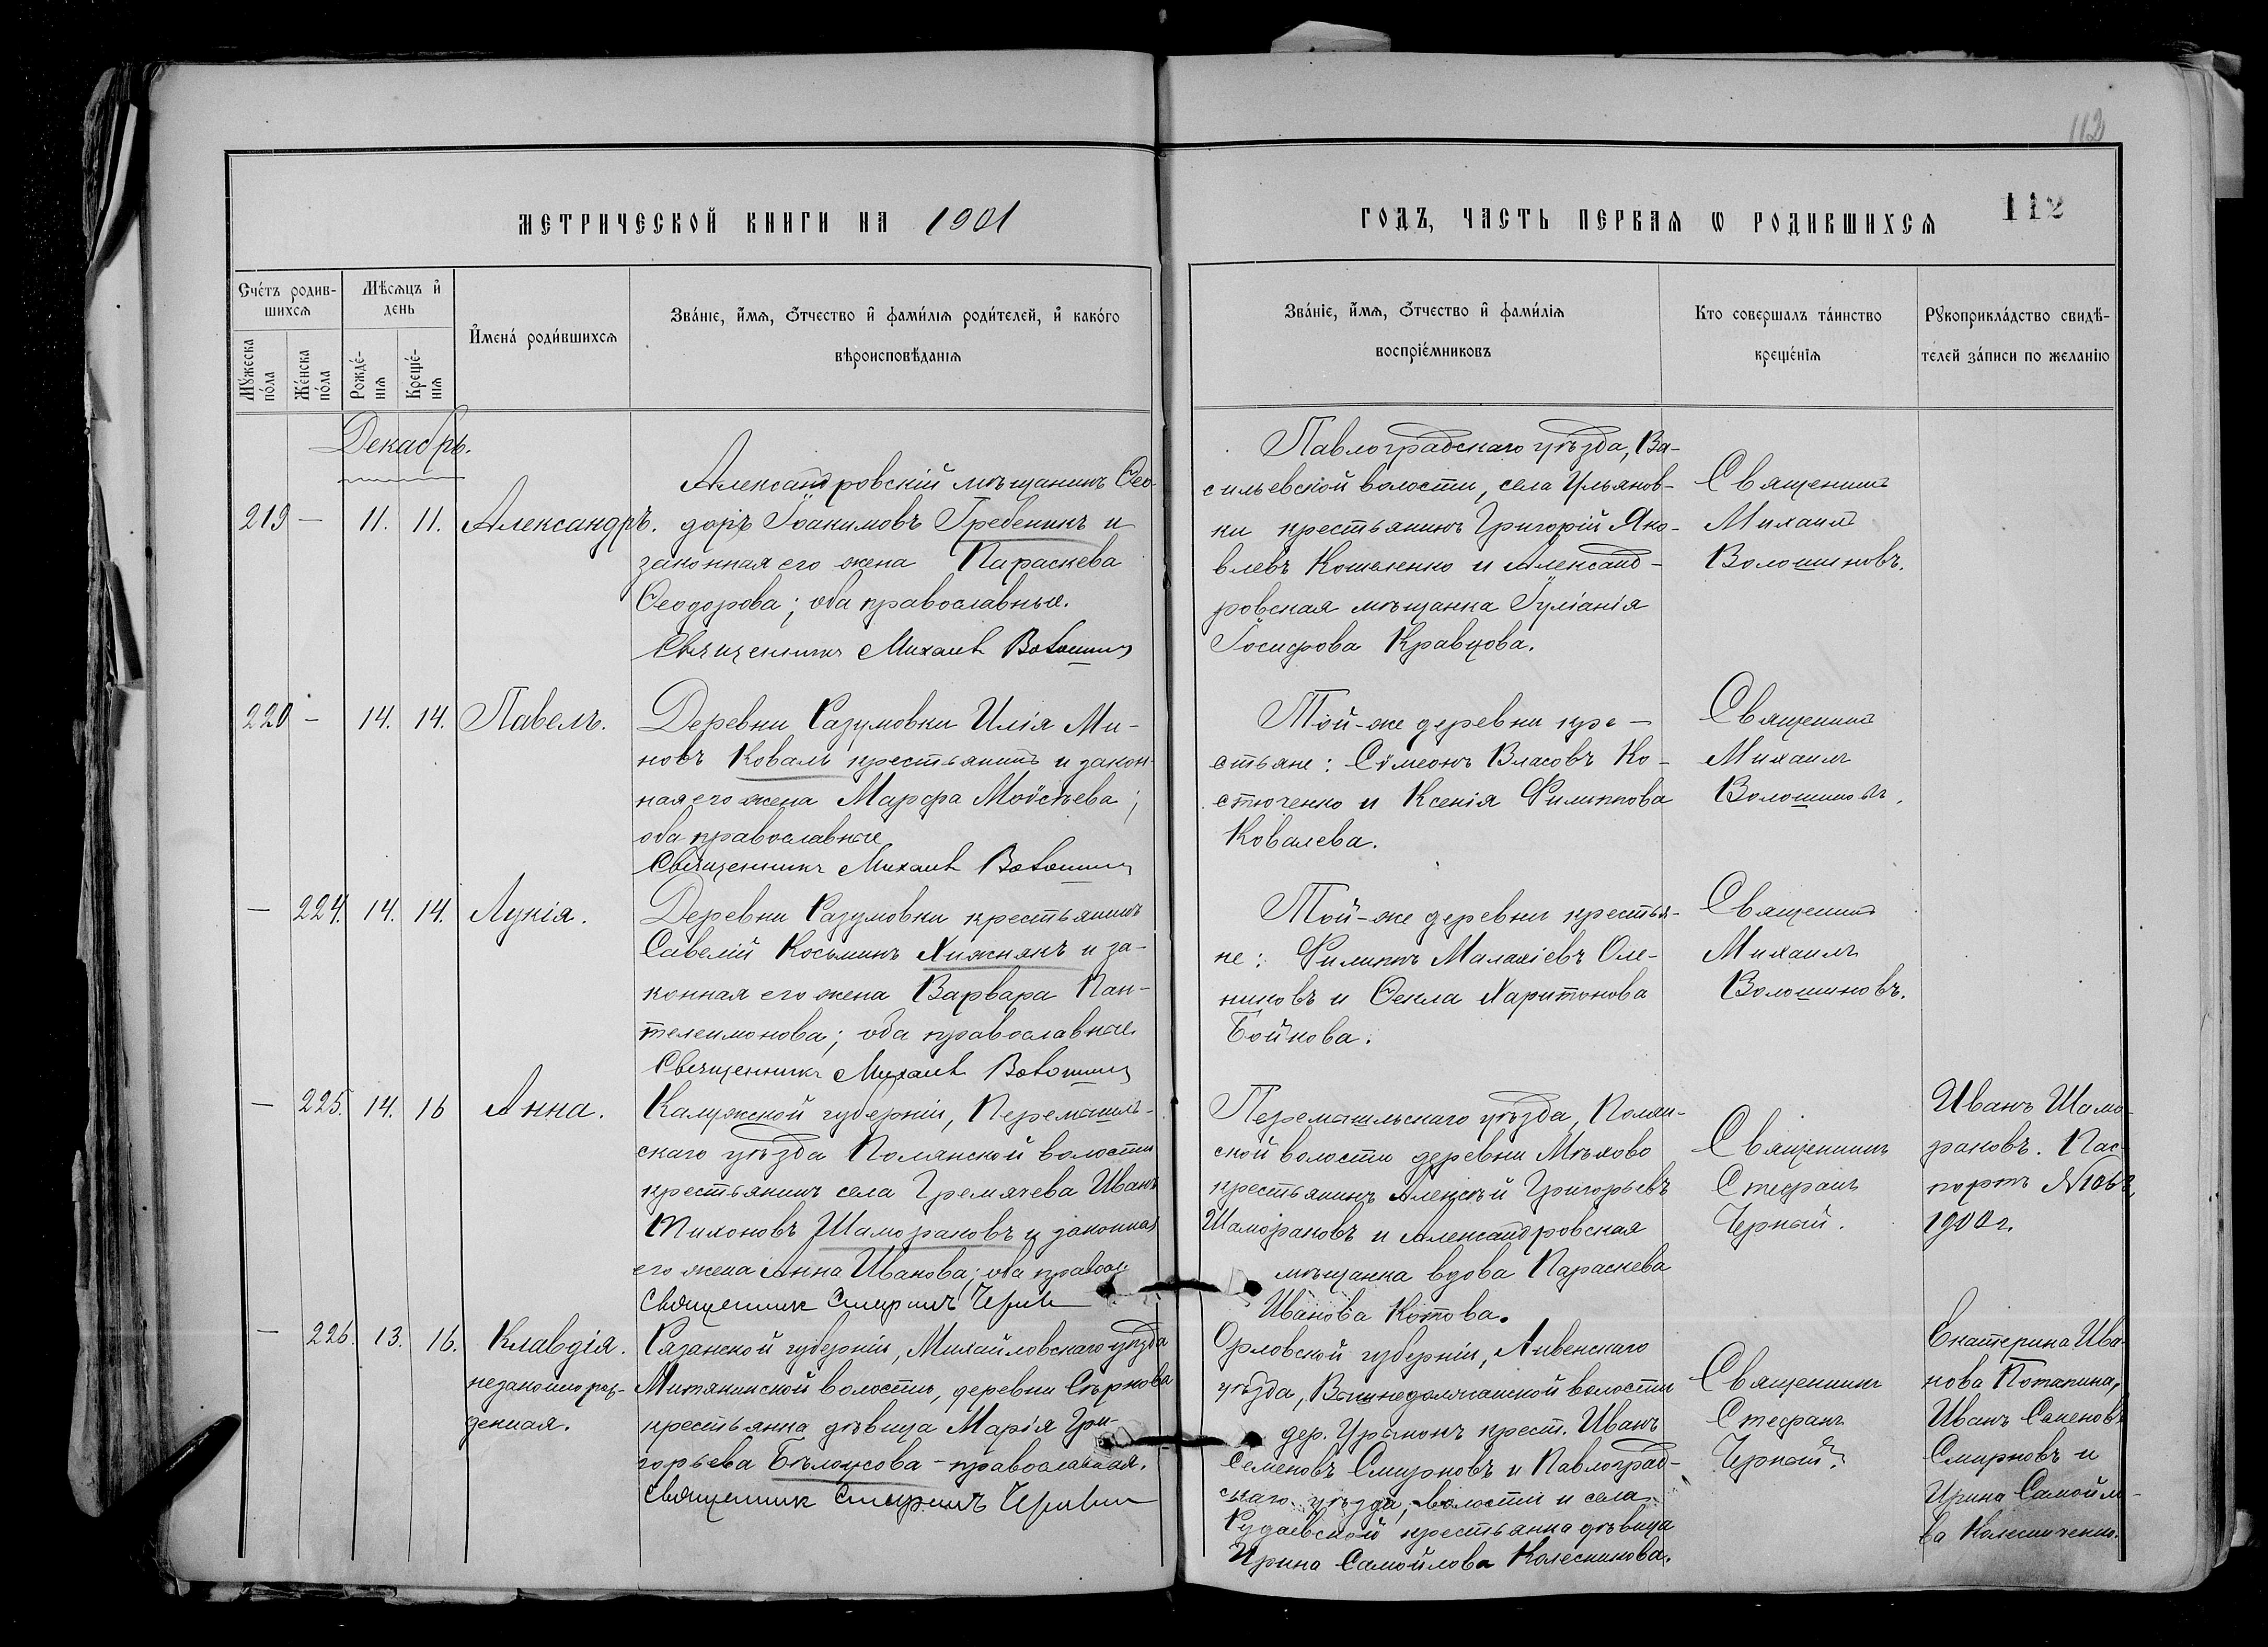 112
МЕТРИЧЕСКОЙ КНИГИ НА 1901
ГОДЪ, ЧАСТЬ ПЕРВАѦ Ѡ РОДИВШИХСѦ 112
Сче́тъ родив-
шихсѧ
Мѣсѧцъ и҆
день
Мꙋ́жеска
по́ла
Же́нска
по́ла
Рожде́-
нїѧ
Креще́-
нїѧ
И҆мена̀ роди́вшихсѧ
Зва́нїе, и҆́мѧ, ѻ҆́тчество и҆ фами́лїѧ роди́телей, и҆ како́гѡ
вѣроисповѣ́данїѧ
Зва́нїе, и҆́мѧ, ѻ҆́тчество и҆ фами́лїѧ
воспрїе́мниковъ
Кто совершалъ та́инство
креще́нїѧ
Рꙋкоприкла́дство свидѣ́-
телей за́писи по желанїю
Декабрь.
219 — 11. 11. Александръ.
Александровскій мѣщанинъ Ѳео-
доръ Іоакимовъ Гребеникъ и
законная его жена Параскева
Ѳеодорова; оба православные.
Священникъ Михаил Волошинов
Павлоградскаго уѣзда, Ва-
сильевской волости, села Ульянов-
ки крестьянинъ Григорій Яко-
влевъ Кошеленко и Александ-
ровская мѣщанка Іуліанія
Іосифова Кравцова.
Священникъ
Михаилъ
Волошиновъ.
220 — 14. 14. Павелъ.
Деревни Разумовки Илія Ми-
новъ Коваль крестьянинъ и закон-
ная его жена Марфа Моѵсѣева;
оба православные
Священникъ Михаил Волошинов
Той-же деревни кре-
стьяне: Сѵмеонъ Власовъ Ко-
стюченко и Ксенія Филиппова
Ковалева.
Священникъ
Михаилъ
Волошиновъ.
— 224. 14. 14. Лукія.
Деревни Разумовки крестьянинъ
Савелій Косьминъ Хижнякъ и за-
конная его жена Варвара Пан-
телеимонова; оба православные.
Священникъ Михаил Волошинов
Той-же деревни крестья-
не: Филиппъ Малахіевъ Оле-
никовъ и Ѳекла Харитонова
Бойкова.
Священникъ
Михаилъ
Волошиновъ.
— 225. 14. 16 Анна.
Калужской губерніи, Перемышль-
скаго уѣзда Полянской волости
крестьянинъ села Гремячева Иванъ
Тихоновъ Шамораковъ и законная
его жена Анна Иванова; оба правосл.
Священник Стефанъ Черный
Перемышльскаго уѣзда, Полян-
ской волости деревни Мѣхово
крестьянинъ Алексѣй Григорьевъ
Шамораковъ и Александровская
мѣщанка вдова Параскева
Иванова Котова.
Священникъ
Стефанъ
Черный.
Иванъ Шамо-
раковъ. Пас-
портъ
1900 г.
— 226. 13. 16. Клавдія.
незаконно рож-
денная.
Рязанской губерніи, Михайловскаго уѣзда
Митякинской волости, деревни Сѣрнова
крестьянка дѣвица Марія Гри-
горьева Бѣлоусова — православная.
Священник Стефанъ Черный
Орловской губерніи, Ливенскаго
уѣзда, волости
дер. крест. Иванъ
Семеновъ Смирновъ и Павлоград-
скаго уѣзда, волости и села
крестьянка дѣвица
Ирина Самойлова Колесникова.
Священникъ
Стефанъ
Черный.
Екатерина Ива-
нова Потапина,
Иванъ Семеновъ
Смирновъ и
Ирина Самойло-
ва